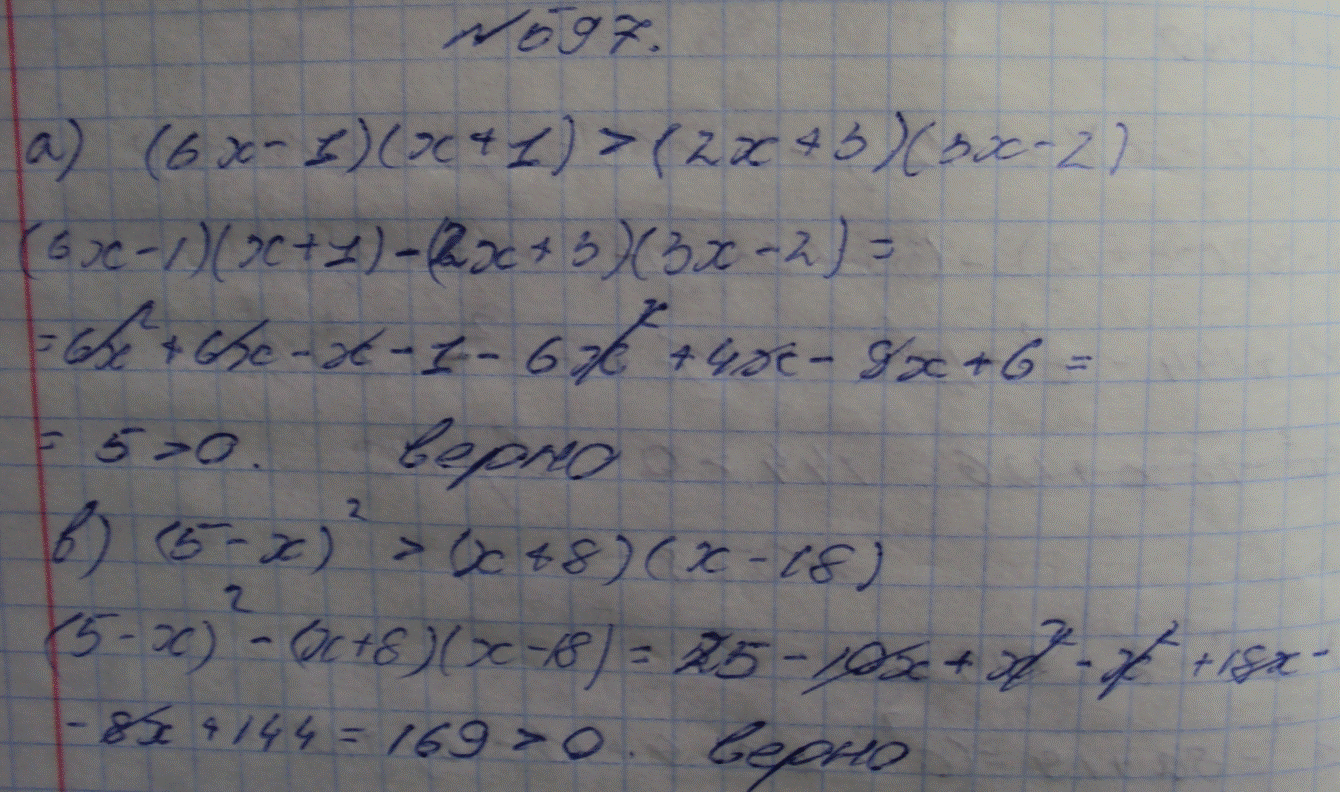 №597.
а) (6x-1)(x+1)>(2x+3)(3x-2)
(6x-1)(x+1)-(2x+3)(3x-2)=
=6x²+6x-x-1-6x²+4x-9x+6=
= 5>0. верно
в) (5-x)² > (x+8)(x-18)
(5-x)²-(x+8)(x-18)=25-10x+x²-x²+18x-
-8x+144=169>0. верно